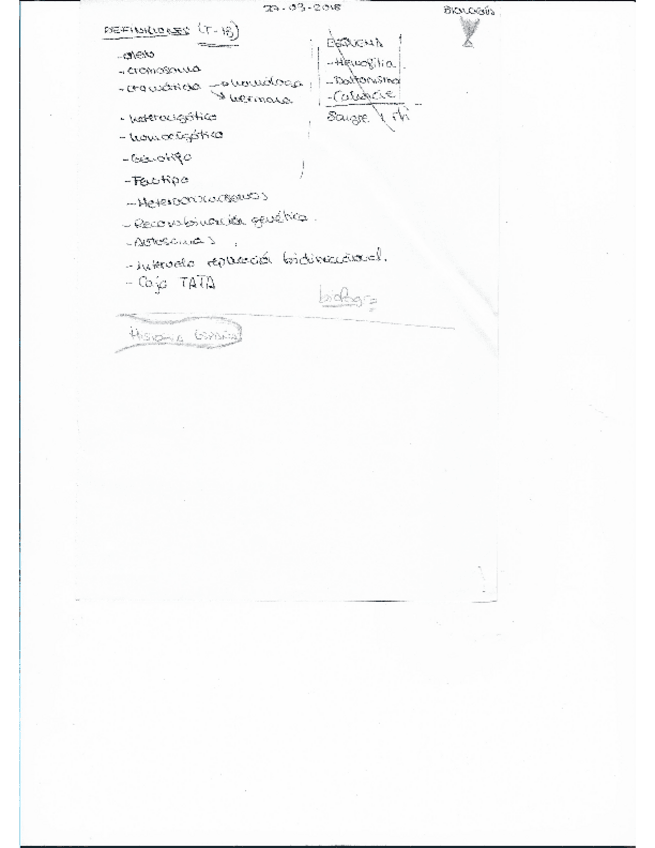 27-03-2018
BIOLOGÍA
DEFINICIONES (T-13)
- alelo
- cromosoma
- cromátida → homóloga
→ hermana
- heterocigótico
- homocigótico
- Genotipo
- Fenotipo
- Heterocromosomas
- Recombinación genética.
- Autosomas
- Intervalo replicación bidireccional.
- Caja TATA
ESQUEMA
- Hemofilia
- Daltonismo
- Calvicie
Sangre y rh
Historia España